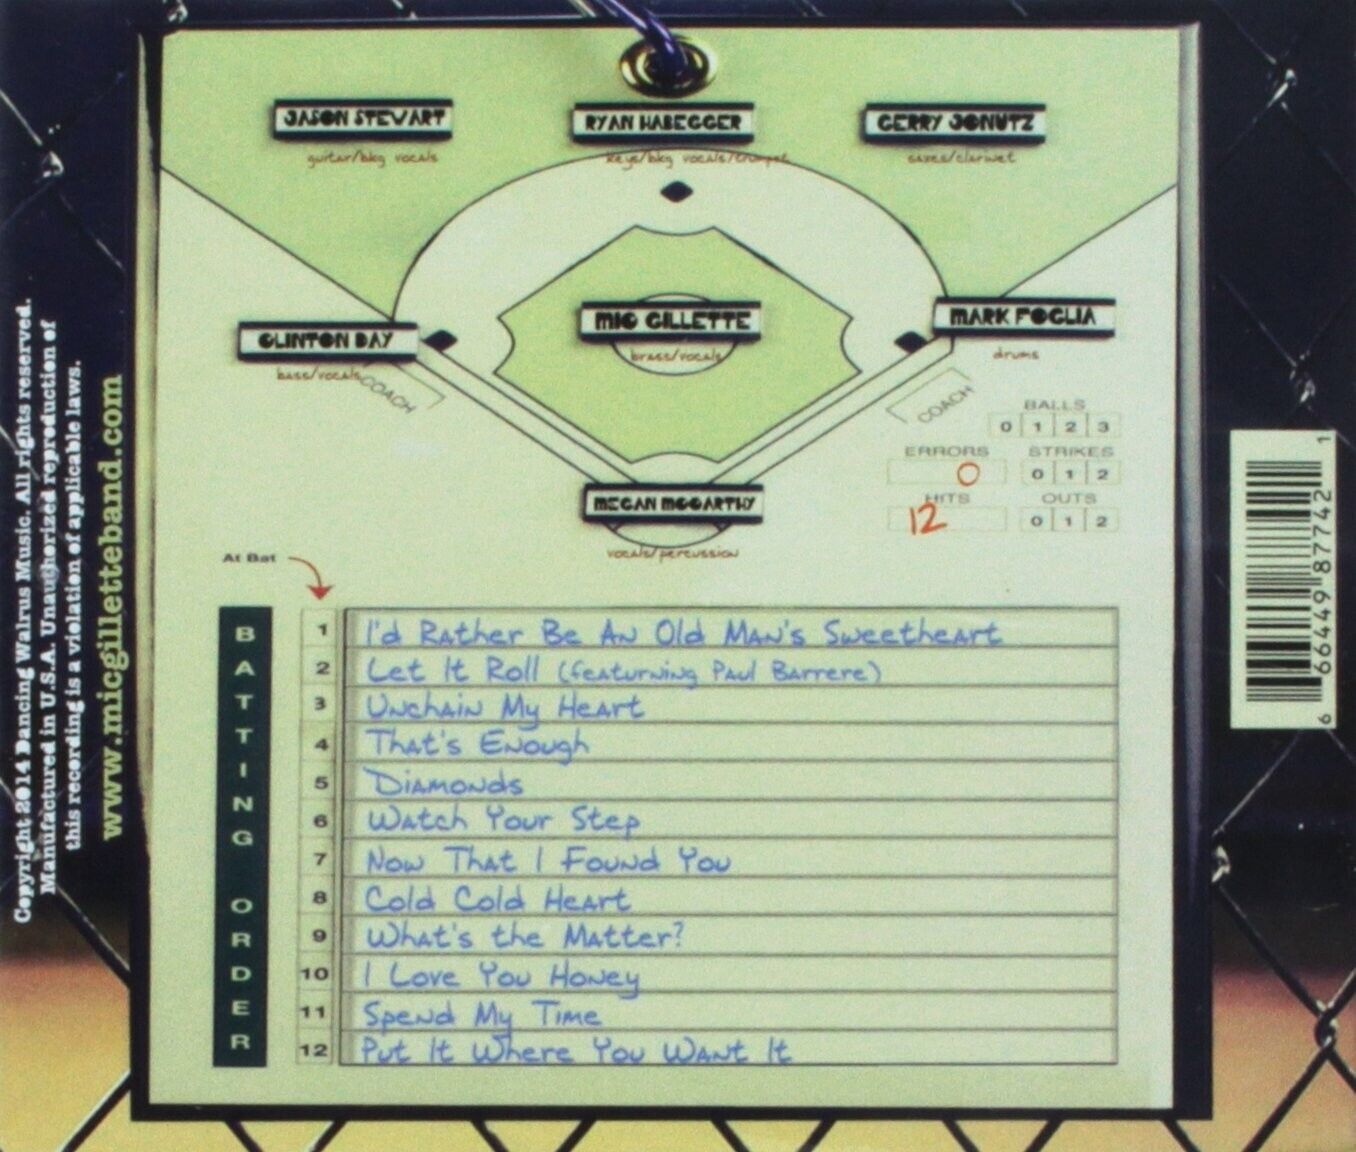 JASON STEWART
guitar/bkg vocals
RYAN HABEGGER
keys/bkg vocals/trumpet
GERRY JONUTZ
saxes/clarinet
CLINTON DAY
bass/vocals
MIC GILLETTE
brass/vocals
MARK FOGLIA
drums
COACH
COACH
BALLS
0 1 2 3
ERRORS
0
STRIKES
0 1 2
HITS
12
OUTS
0 1 2
MEGAN MCCARTHY
vocals/percussion
At Bat
BATTING ORDER
1 I'd Rather Be An Old Man's Sweetheart
2 Let It Roll (featurning Paul Barrere)
3 Unchain My Heart
4 That's Enough
5 Diamonds
6 Watch Your Step
7 Now That I Found You
8 Cold Cold Heart
9 What's the Matter?
10 I Love You Honey
11 Spend My Time
12 Put It Where You Want It
Copyright 2014 Dancing Walrus Music. All rights reserved.
Manufactured in U.S.A. Unauthorized reproduction of
this recording is a violation of applicable laws.
www.micgilletteband.com
6 66449 87742 1